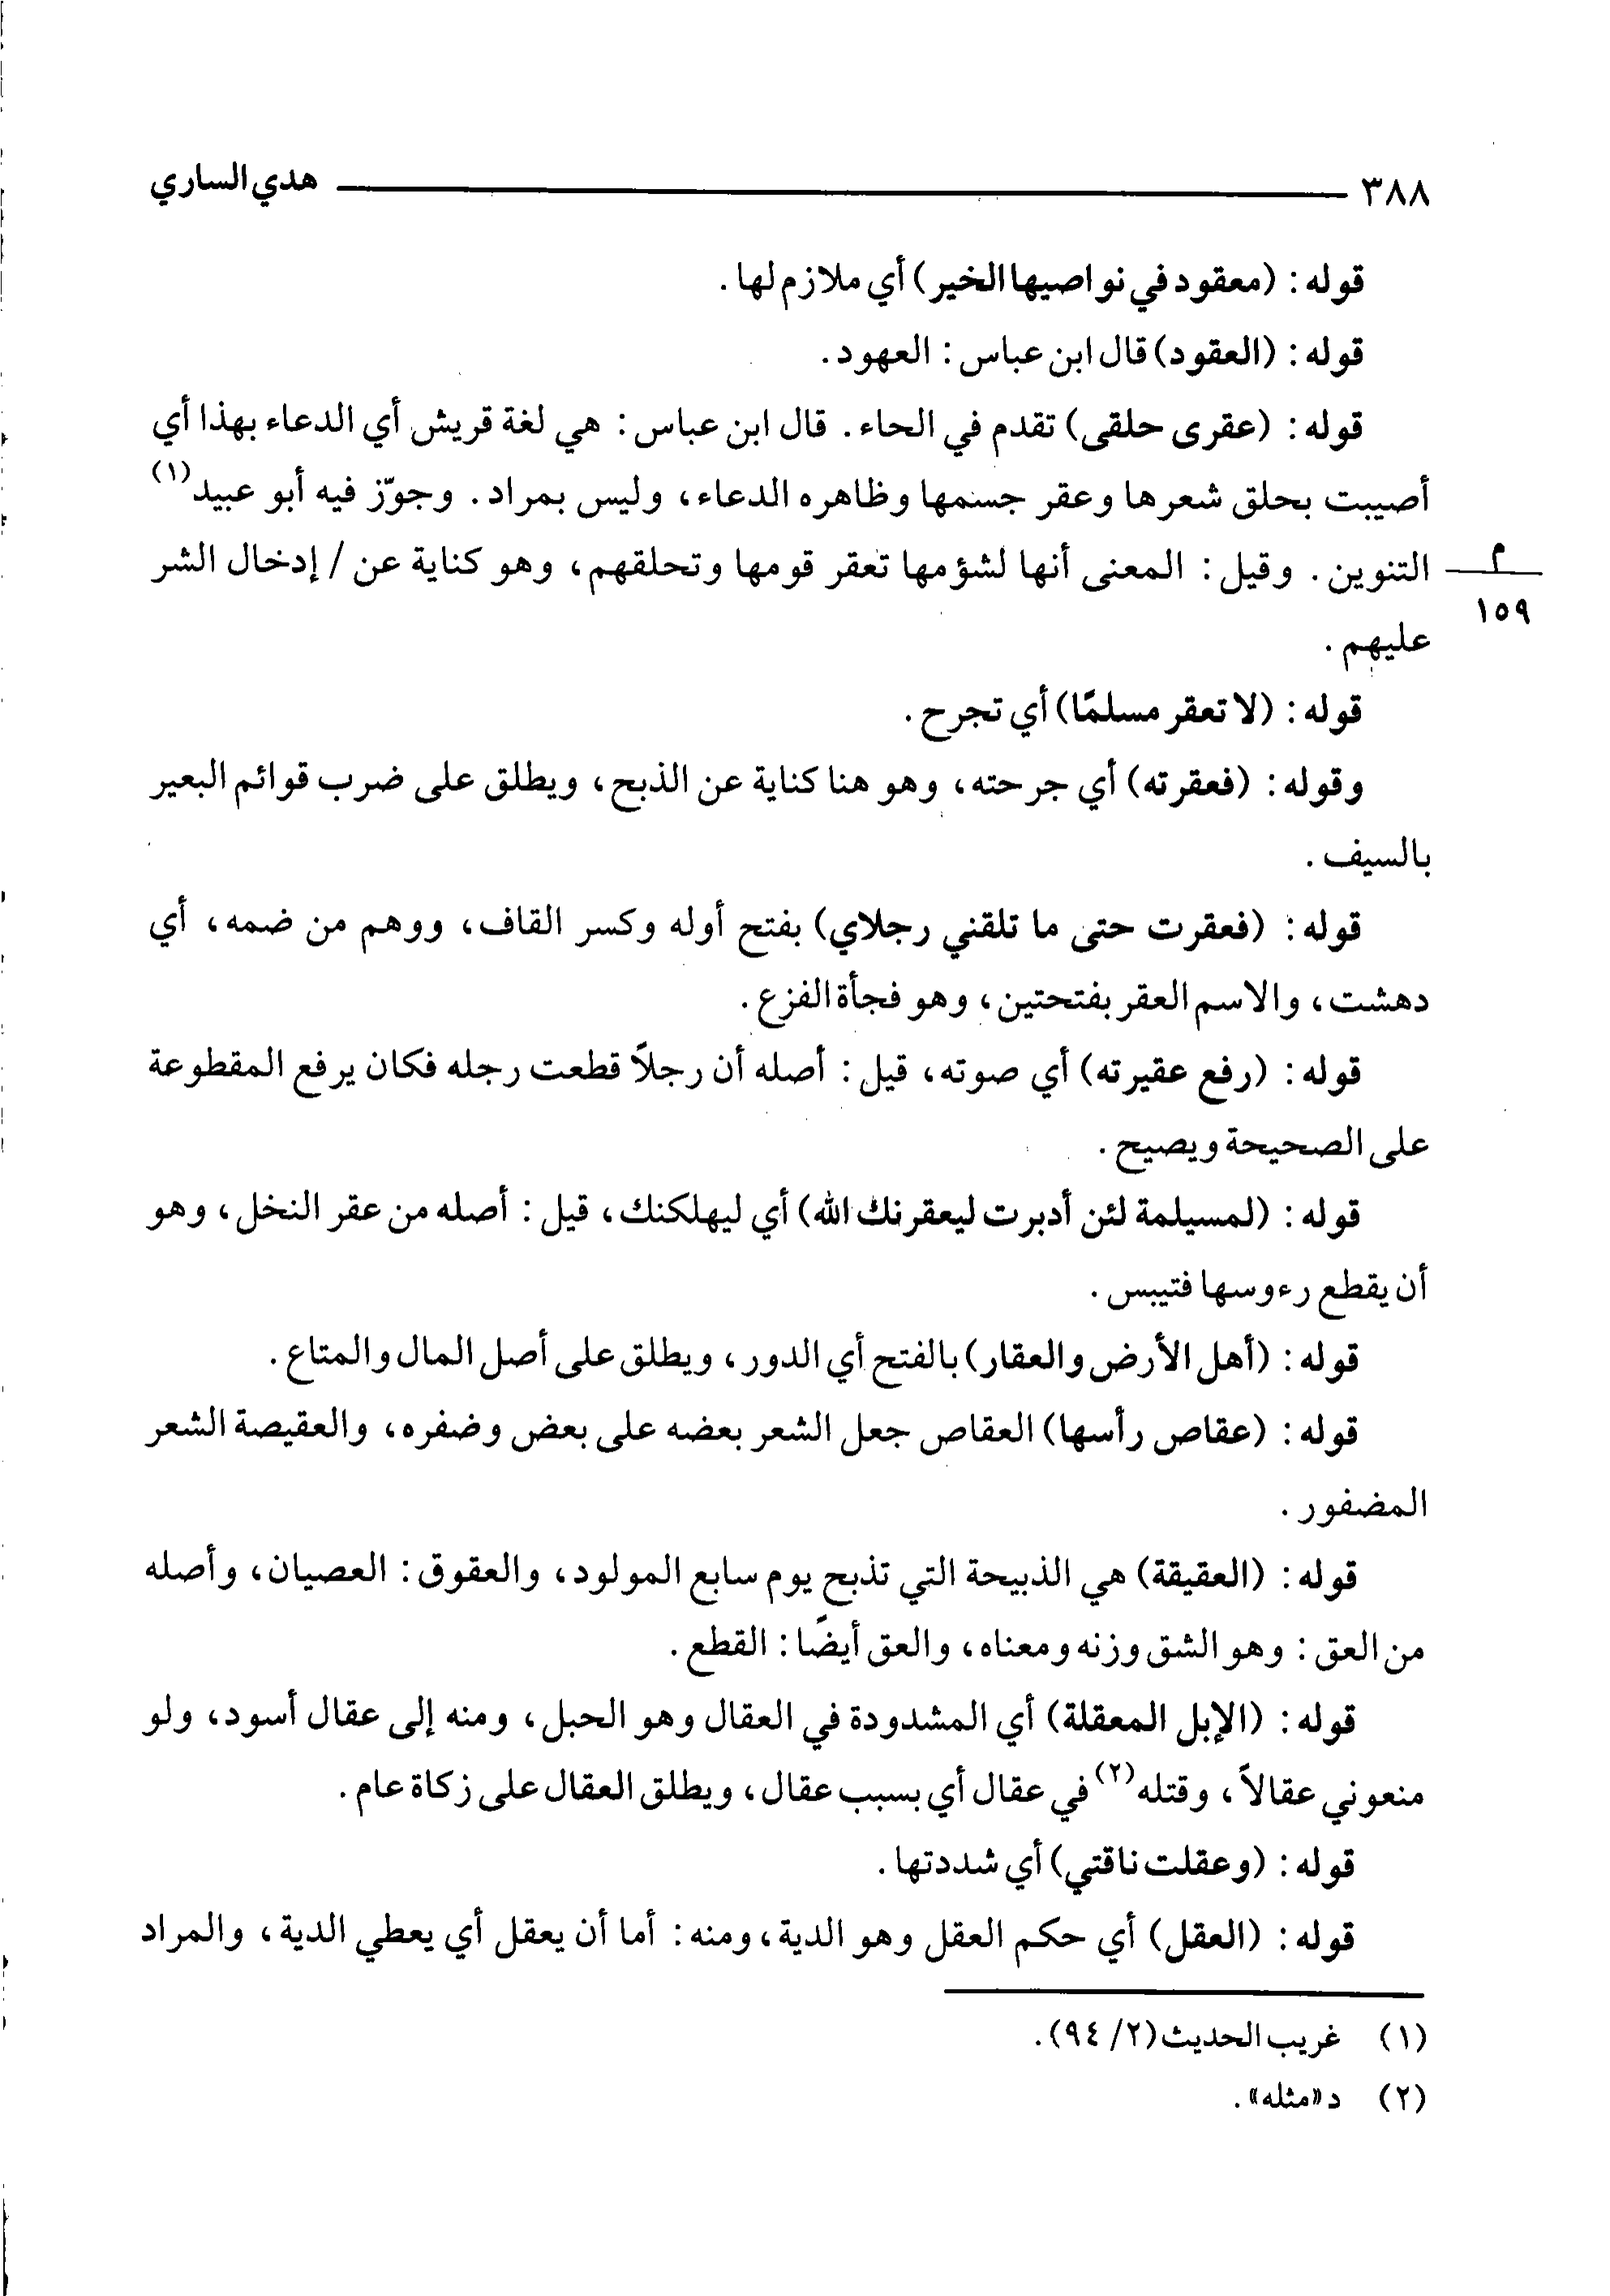 ٣٨٨ هدي الساري
قوله: (معقود في نواصيها الخير) أي ملازم لها.
قوله: (العقود) قال ابن عباس: العهود.
قوله: (عقرى حلقى) تقدم في الحاء. قال ابن عباس: هي لغة قريش أي الدعاء بهذا أي
أصيبت بحلق شعرها وعقر جسمها وظاهره الدعاء، وليس بمراد. وجوّز فيه أبو عبيد(١)
التنوين. وقيل: المعنى أنها لشؤمها تعقر قومها وتحلقهم، وهو كناية عن / إدخال الشر
م
١٥٩
عليهم.
قوله: (لا تعقر مسلمًا) أي تجرح.
وقوله: (فعقرته) أي جرحته، وهو هنا كناية عن الذبح، ويطلق على ضرب قوائم البعير
بالسيف.
قوله: (فعقرت حتى ما تلقني رجلاي) بفتح أوله وكسر القاف، ووهم من ضمه، أي
دهشت، والاسم العقر بفتحتين، وهو فجأة الفزع.
قوله: (رفع عقيرته) أي صوته، قيل: أصله أن رجلاً قطعت رجله فكان يرفع المقطوعة
على الصحيحة ويصيح.
قوله: (لمسيلمة لئن أدبرت ليعقرنك الله) أي ليهلكنك، قيل: أصله من عقر النخل، وهو
أن يقطع رءوسها فتيبس.
قوله: (أهل الأرض والعقار) بالفتح أي الدور، ويطلق على أصل المال والمتاع.
قوله: (عقاص رأسها) العقاص جعل الشعر بعضه على بعض وضفره، والعقيصة الشعر
المضفور.
قوله: (العقيقة) هي الذبيحة التي تذبح يوم سابع المولود، والعقوق: العصيان، وأصله
من العق: وهو الشق وزنه ومعناه، والعق أيضًا: القطع.
قوله: (الإبل المعقلة) أي المشدودة في العقال وهو الحبل، ومنه إلى عقال أسود، ولو
منعوني عقالاً، وقتله(٢) في عقال أي بسبب عقال، ويطلق العقال على زكاة عام.
قوله: (وعقلت ناقتي) أي شددتها.
قوله: (العقل) أي حكم العقل وهو الدية، ومنه: أما أن يعقل أي يعطي الدية، والمراد
(١) غريب الحديث (٢/ ٩٤).
(٢) د «مثله».